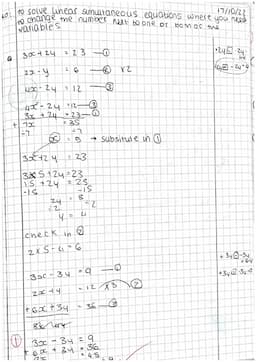 17/10/22
LO: to solve linear simultaneous equations where you need
to change the number next to one or both of the
variables
3x + 2y = 23 — ①
2x - y = 6 — ② x2
4x - 2y = 12 — ③
4x - 2y = 12 — ③
+ 3x + 2y = 23 — ①
7x = 35
÷7 ÷7
x = 5 → substitute in ①
3x + 2y = 23
3x5 + 2y = 23
15 + 2y = 23
-15 -15
2y = 8
÷2 ÷2
y = 4
check in ②
2x5 - 4 = 6
3x - 3y = 9 — ①
2x + y = 12 x3 ②
+ 6x + 3y = 36 — ③
① 3x - 3y = 9
+ 6x + 3y = 36
= 45